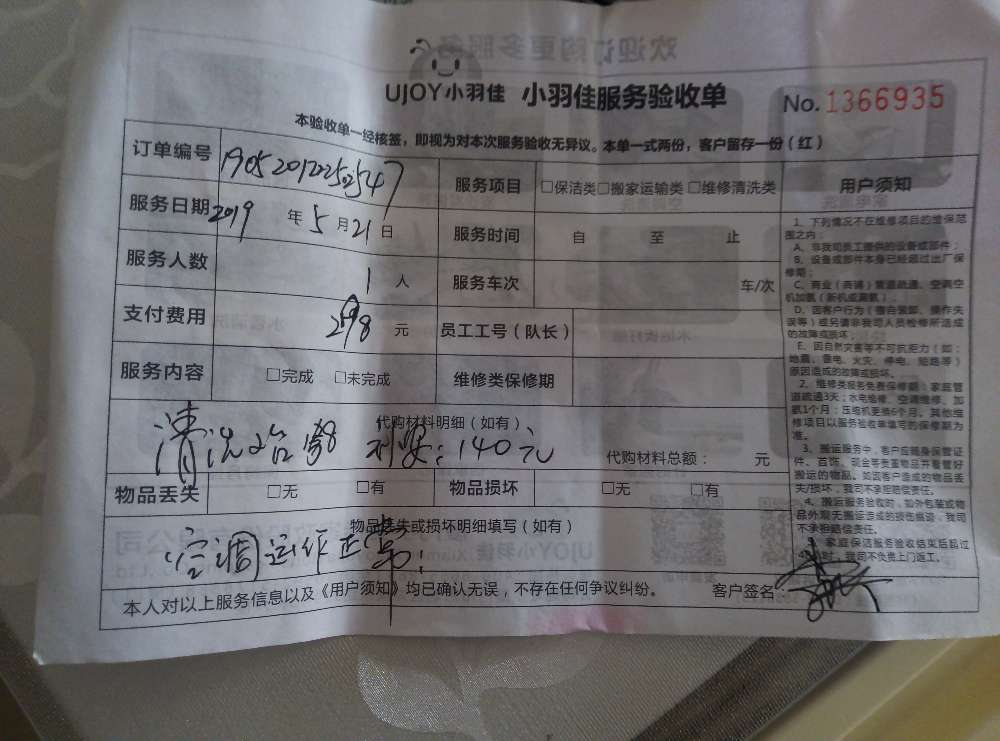 UJOY小羽佳 小羽佳服务验收单 No.1366935
本验收单一经核签，即视为对本次服务验收无异议。本单一式两份，客户留存一份（红）
订单编号
服务项目 □保洁类□搬家运输类□维修清洗类
服务日期 2019 年 5 月 21 日
服务时间 自 至 止
服务人数 1 人
服务车次 车/次
支付费用 298 元
员工工号（队长）
服务内容 □完成 □未完成
维修类保修期
代购材料明细（如有）
清洗 140元
代购材料总额： 元
物品丢失 □无 □有
物品损坏 □无 □有
物品丢失或损坏明细填写（如有）
空调运作正常.
本人对以上服务信息以及《用户须知》均已确认无误，不存在任何争议纠纷。 客户签名
用户须知
1、下列情况不在维修项目的维保范
围之内：
A、非我司员工提供的设备或部件；
B、设备或部件本身已经超过出厂保
修期；
C、商业（商铺）管道疏通、空调空
机加氨（新机或漏氨）
D、因客户行为（擅自装卸、操作失
误等）或另请非我司人员检修所造成
的故障或损坏；
E、因自然灾害等不可抗拒力（如：
地震、雷电、火灾、停电、短路等）
原因造成的故障或损坏。
2、维修类服务免费保修期：家庭管
道疏通3天；水电维修、空调维修、加
氨1个月；压缩机更换6个月。其他维
修项目以服务验收单填写的保修期为
准。
3、搬运服务中，客户应随身保管证
件、首饰、现金等贵重物品并看管好
搬运的物品。如因客户造成的物品丢
失/损坏，我司不承担赔偿责任。
4、搬运服务验收时，如外包装或物
品外观无搬运造成的损伤痕迹，我司
不承担赔偿责任。
家庭保洁服务验收结束后超过
时，我司不负责上门返工。